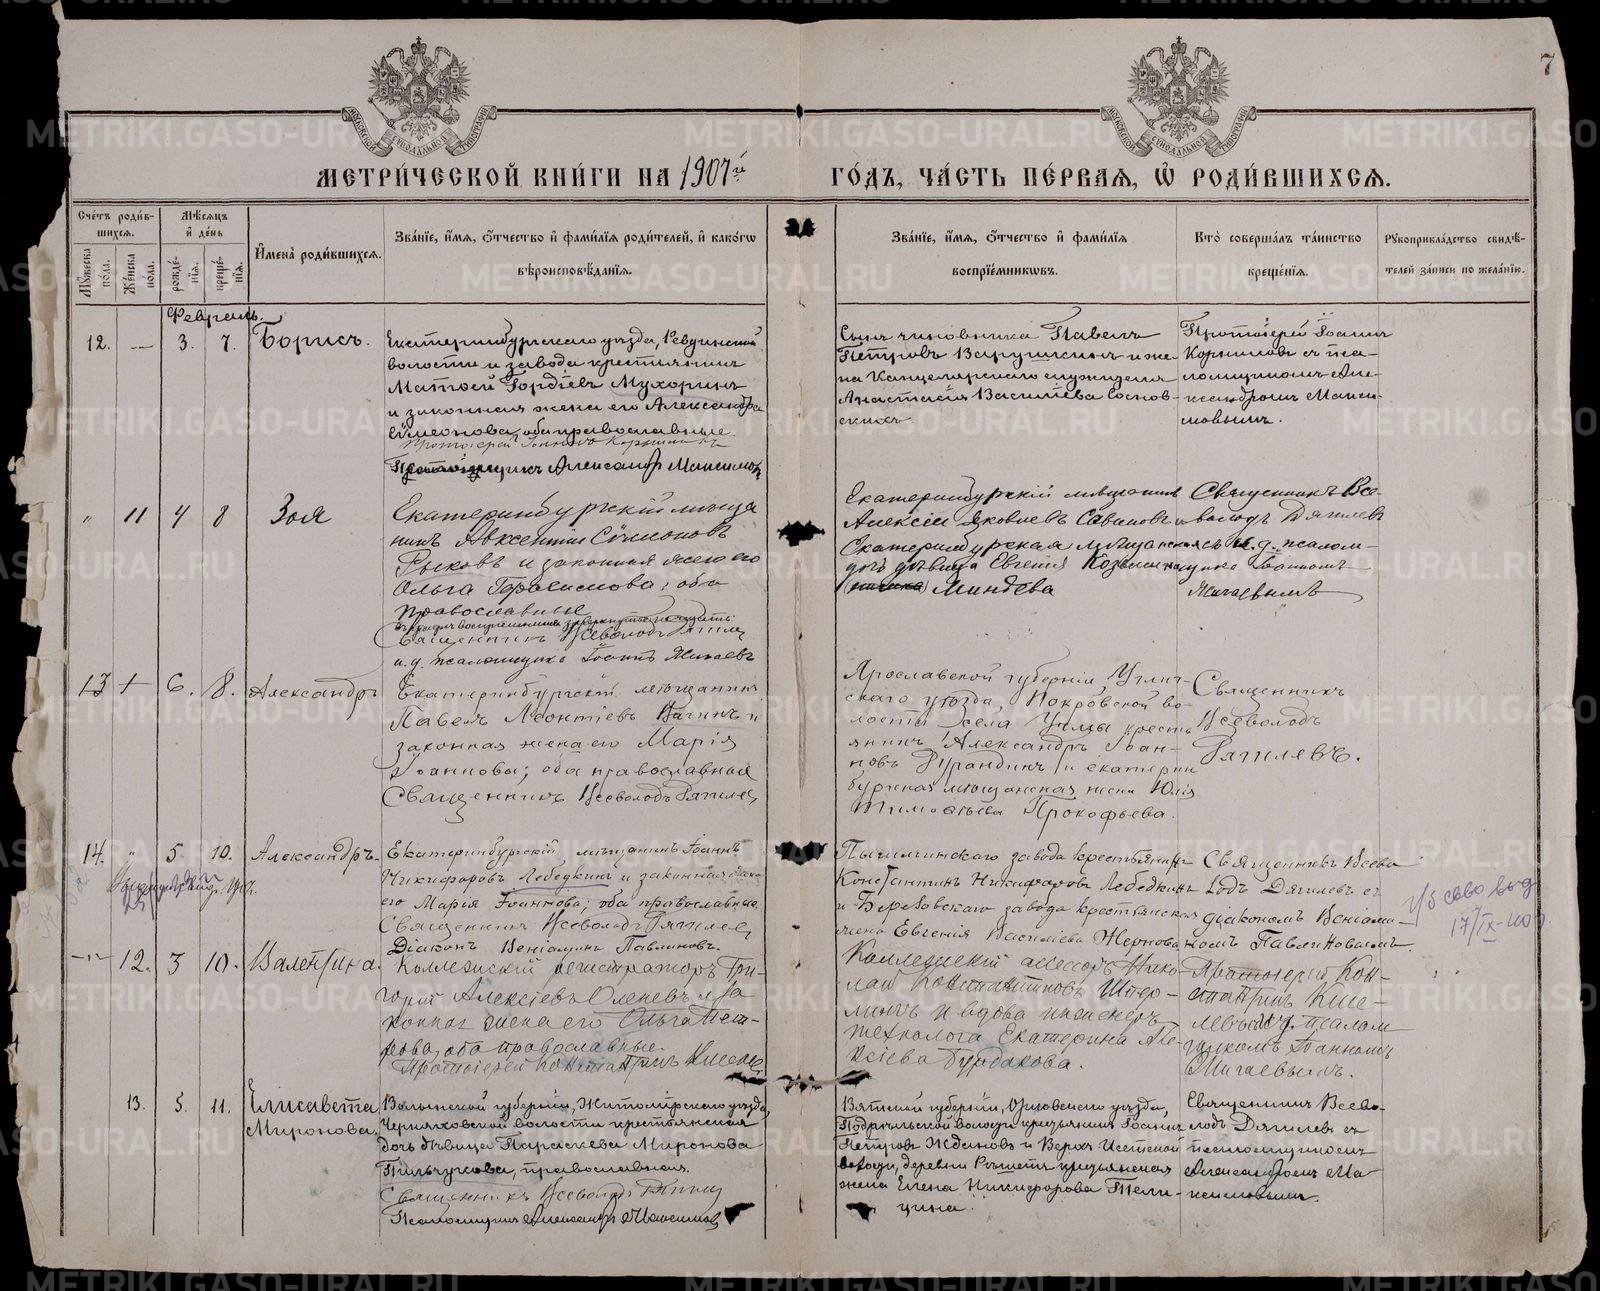 7
МОСКОВСКОЙ СѴНОДАЛЬНОЙ ТИПОГРАФІИ
МОСКОВСКОЙ СѴНОДАЛЬНОЙ ТИПОГРАФІИ
МЕТРИ́ЧЕСКОЙ КНИ́ГИ НА 1907й
ГО́ДЪ, ЧА́СТЬ ПЕ́РВАЯ, Ѽ РОДИ́ВШИХСѦ.
Сче́тъ роди́в-
шихсѧ.
Мѣ́сѧцъ
и҆ де́нь
Мꙋ́жеска по́ла.
Же́нска по́ла.
рожде́-
нїѧ.
креще́-
нїѧ.
И҆мена̀ роди́вшихсѧ.
Зва́нїе, и҆́мѧ, ѻ҆́тчество и҆ фами́лїѧ роди́телей, и҆ како́гѡ
вѣроисповѣ́данїѧ.
Зва́нїе, и҆́мѧ, ѻ҆́тчество и҆ фами́лїѧ
воспрїе́мникѡвъ.
Кто̀ соверша́лъ та́инство
креще́нїѧ.
Рꙋкоприкла́дство свидѣ́-
телей за́писи по жела́нїю.
Февраль.
12. — 3. 7. Борисъ.
Екатеринбургскаго уѣзда, Ревдинской
волости и завода крестьянинъ
Матѳей Гордіевъ Мухоринъ
и законная жена его Александра
Сѷмеонова, оба православные.
Протоіерей Іоаннъ Корнилов
Александр Максимов
Сынъ чиновника Павелъ
Петровъ Варушкинъ и же-
на Канцелярскаго служителя
Анастасія Васильева Соснов-
скихъ.
Протоіерей Іоаннъ
Корниловъ съ пса-
ломщикомъ Але-
ксандромъ Макси-
мовымъ.
" 11 4 8 Зоя
Екатеринбургскій мѣща
нинъ Авксентій Сѷмеоновъ
Рыковъ и законная жена его
Ольга Герасимова; оба
православные
Священникъ Всеволодъ Дягилев
и.д. псаломщика Іоаннъ Мигаевъ
Екатеринбургскій мѣщанинъ
Алексій Яковлевъ Савановъ и
Екатеринбургская мѣщанская
дочь дѣвица Евгенія
Миндѣва
Священникъ Все-
володъ Дягилевъ
съ и.д. псалом-
щика Іоанномъ
Мигаевымъ
13 6. 8. Александръ
Екатеринбургскій мѣщанинъ
Павелъ Леонтіевъ Вагинъ и
законная жена его Марія
Іоаннова; оба православные
Священникъ Всеволодъ Дягилев
Ярославской губерніи, Углич-
скаго уѣзда, Покровской во-
лости села Улы кресть
янинъ Александръ Іоан-
новъ Дурандинъ и екатерин
бургская мѣщанская жена Юлія
Тимоѳеева Прокофьева.
Священникъ
Всеволодъ
Дягилевъ.
14. " 5. 10. Александръ.
Екатеринбургскій мѣщанинъ Іоаннъ
Никифоровъ Лебедкинъ и законная жена
его Марія Іоаннова; оба православные
Священникъ Всеволодъ Дягилев
Діаконъ Веніаминъ Павлиновъ.
Пышминскаго завода крестьянинъ
Константинъ Никифоровъ Лебедкинъ
и Березовскаго завода крестьянская
жена Евгенія Васильева Жернова
Священникъ Всево
лодъ Дягилевъ съ
діакономъ Веніами-
номъ Павлиновымъ.
17/IX-40г.
12. 3 10. Валентина.
Коллежскій регистраторъ Гри-
горій Алексіевъ Оленевъ и за
конная жена его Ольга Пет-
рова, оба православные.
Протоіерей Константинъ
Коллежскій асессоръ Нико-
лай Константиновъ
и вдова инженеръ
технолога Екатерина Але-
ксіева Бурдакова.
Протоіерей Кон-
стантинъ
и.д. псалом
щикомъ Іоанномъ
Мигаевымъ.
13. 5. 11. Елисавета
Миронова.
Волынской губерніи, Житомірскаго уѣзда,
Черняховской волости крестьянская
дочь дѣвица Параскева Миронова
Пильчукова, православная.
Священникъ Всеволодъ Дягилев
Псаломщикъ Александръ Максимов
Вятской губерніи, Орловскаго уѣзда,
Подрѣльской волости крестьянинъ Іоаннъ
Петровъ Ждановъ и Верхъ Исетской
волости, деревни Рѣшетъ крестьянская
жена Елена Никифорова Тели-
цина.
Священникъ Всево-
лодъ Дягилевъ съ
псаломщикомъ
Александромъ Ма-
ксимовымъ.
METRIKI.GASO-URAL.RU